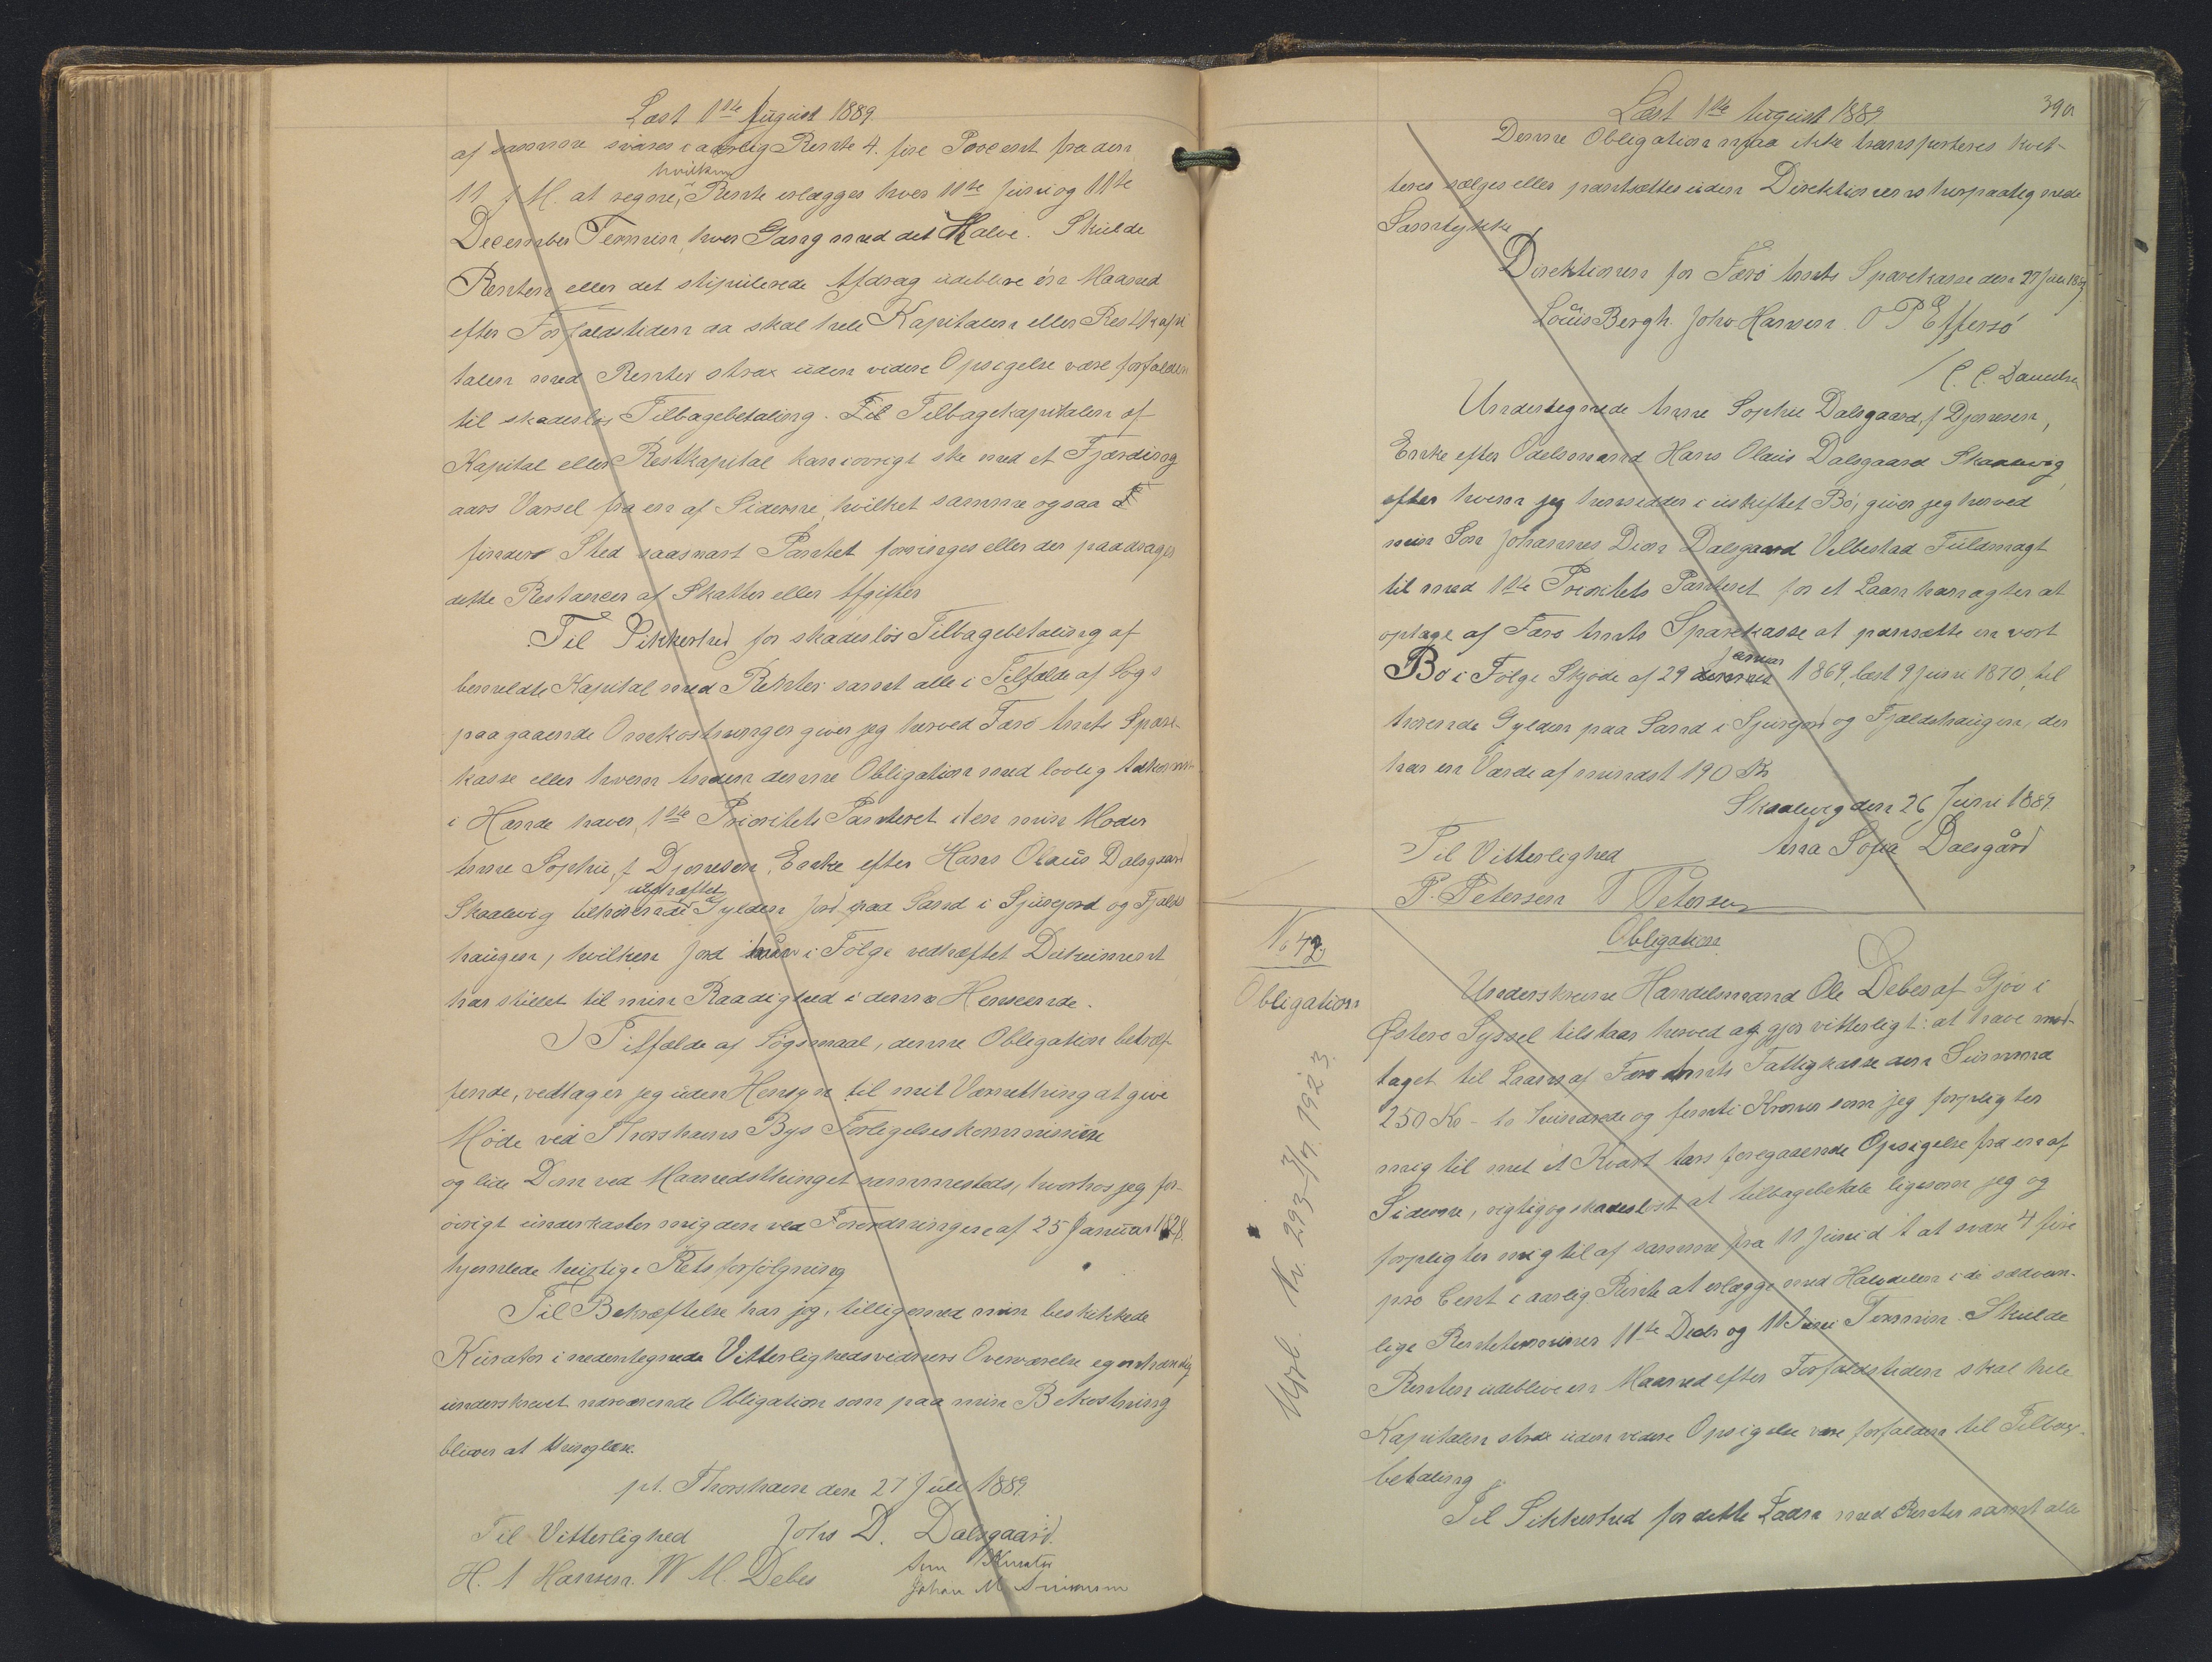 Læst 1ste August 1889.
af samme svares i aarlig Rente 4. fire Procent fra den
hvilken
11 f. M. at regne, Rente erlægges hver 11te Juni og 11te
December Termin, hver Gang med det Halve. Skulde
Renten eller det stipulerede Afdrag udeblive én Maaned
efter Forfaldstiden da skal hele Kapitalen eller Restkapi
talen med Renter strax uden videre Opsigelse være forfalden
til skadeslös Tilbagebetaling. Til Tilbagekapitalen af
Kapital eller Restkapital kan iövrigt ske med et Fjærding
aars Varsel fra en af Siderne, hvilket samme ogsaa
finder Sted saasnart Pantet forringes eller der paadrages
dette Restancer af Skatter eller Afgifter
Til Sikkerhed for skadeslös Tilbagebetaling af
bemeldte Kapital med Renter samt alle i Tilfælde af Sögs
paagaaende Omkostninger giver jeg herved Færö Amts Spare-
kasse eller hvem Anden denne Obligation med lovlig Adkomst
i Hænde haver, 1ste Prioritets Panteret i den min Moder
Anne Sophie, f. Djonesen, Enke efter Hans Olaus Dalsgaard
udskræftet
Skaalevig tilhörende Gylden Jord paa Sand i Sjúregord og Fjalds
haugen, hvilken Jord hun i Fölge vedhæftet Dokument
har stillet til min Raadighed i denne Henseende.
I Tilfælde af Sögsmaal, denne Obligation betræf-
fende, vedtager jeg uden Hensyn til mit Værnething at give
Möde ved Thorshavns Bys Forligelseskommission
og lide Dom ved Manedsthinget sammesteds, hvorhos jeg for-
övrigt underkaster mig den ved Forordningen af 25 Januar 1828
hjemlede hurtige Retsforfölgning
Til Bekræftelse har jeg, tilligemed min beskikkede
Kurator i nedentegnede Vitterlighedsvidners Overværelse egenhændig
underskrevet nærværende Obligation som paa min Bekostning
bliver at thinglæse.
pt. Thorshavn den 27 Juli 1889.
Til Vitterlighed Johs D. Dalsgaard.
H. A Hansen. W M. Debes Som Kurator
Johan M
Læst 1ste August 1889 390.
Denne Obligation maa ikke transporteres kvit-
teres sælges eller pantsættes uden Direktionens herpaategnede
Samtykke
Direktionen for Færö Amts Sparekasse den 27 Juli 1889
Louis Bergh. Johs Hansen. O P Effersö
/ C. C. Danielsen
Undertegnede Anne Sophie Dalsgaard, f Djonesen,
Enke efter Odelsmand Hans Olaus Dalsgaard Skaalevig
efter hvem jeg hensidder i uskiftet Bo, giver jeg herved
min Sön Johannes Dion Dalsgaard Velbestad Fuldmagt
til med 1ste Prioritets Panteret for et Laan han agter at
optage af Færö Amts Sparekasse at pansætte en vort
Januar
Bo i Fölge Skjöde af 29 1869, læst 9 Juni 1870, til
hörende Gylden paa Sand i Sjuregord og Fjaldshaugen, der
har en Værdi af mindst 190 Kr
Skaalevig den 26 Juni 1889.
Til Vitterlighed Anna Sofia Dalsgård
P. Petersen T Petersen
No 42.
Obligation
Obligation
Underskrevne Handelsmand Ole Debes af Gjov i
Østerö Syssel tilstaar herved og gjör vitterligt: at have mod-
taget til Laans af Færö Amts Fattigkasse den Summa
250 Kr - to hundrede og femti Kroner som jeg forpligter
mig til met et Kvart Aars foregaaende Opsigelse fra en af
Siderne, rigtig og skadeslöst at tilbagebetale ligesom jeg og
forpligter mig til af samme fra 11 Juni d A at svare 4 fire
pro Cent i aarlig Rente at erlægge med Halvdelen i de sædvan-
lige Renteterminer 11te Decbr og 11 Juni Termin. Skulde
Renten udeblive en Maaned efter Forfaldstiden skal hele
Kapitalen strax uden videre Opsigelse være forfalden til Tilbage-
betaling
Til Sikkerhed for dette Laan med Renter samt alle
Udsl. Nr. 293 - 3/9. 1923.